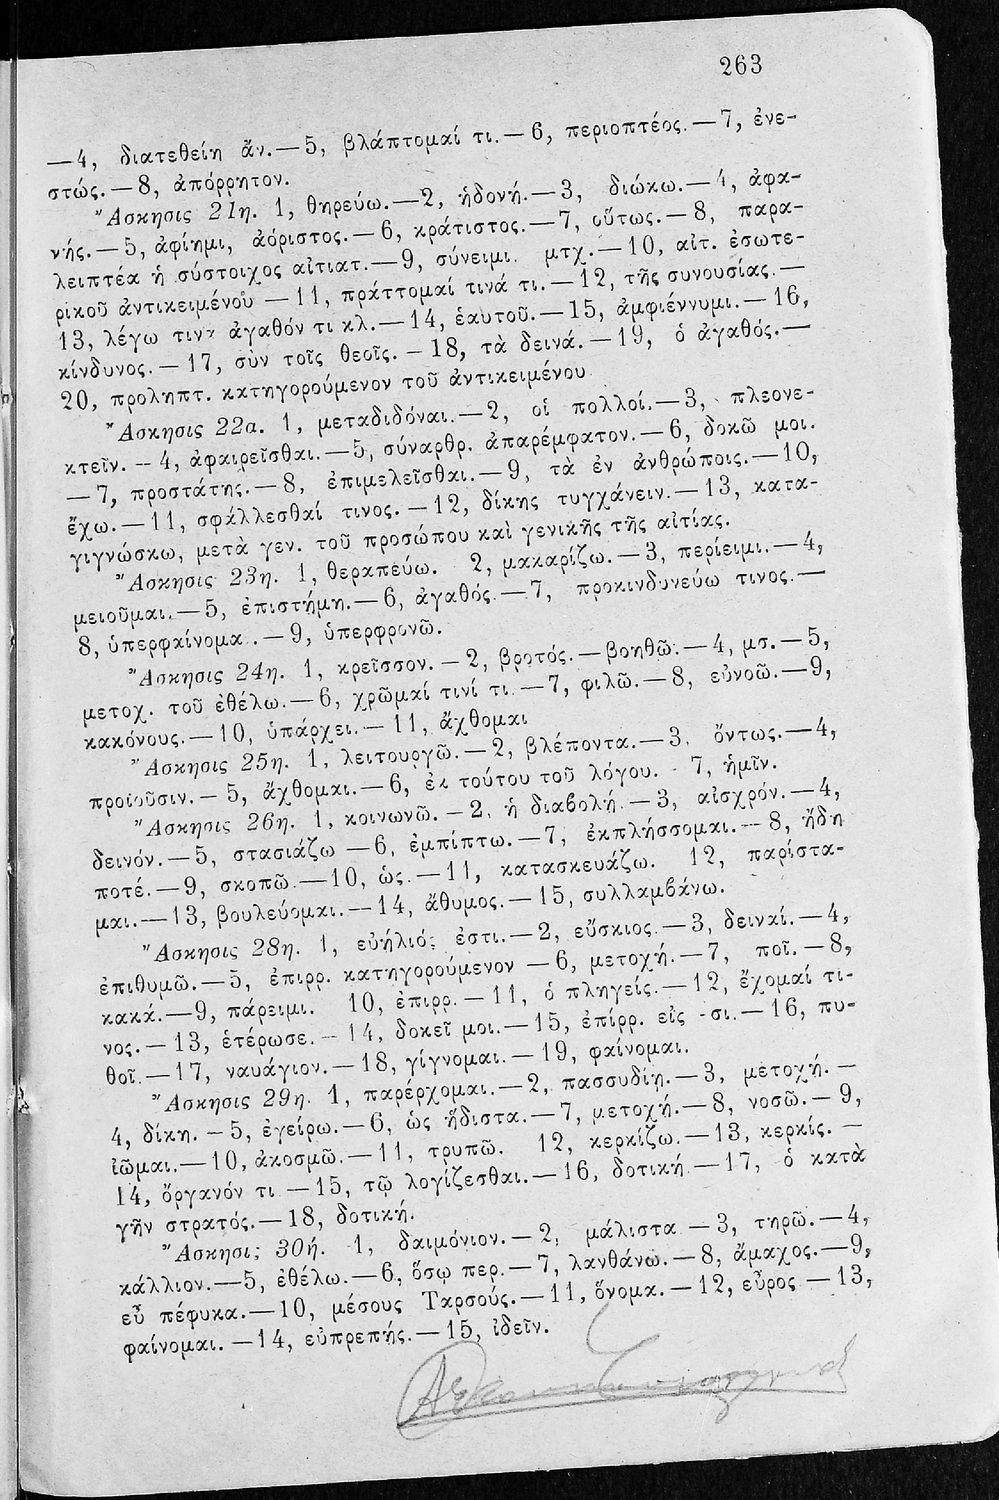 263
—4, διατεθείη ἄν.—5, βλάπτομαί τι.—6, περιοπτέος.—7, ἐνε-
στώς.—8, ἀπόρρητον.
Ἄσκησις 21η. 1, θηρεύω.—2, ἡδονή.—3, διώκω.—4, ἀφα-
νής.—5, ἀφίημι, ἀόριστος.—6, κράτιστος.—7, οὕτως.—8, παρα-
λειπτέα ἡ σύστοιχος αἰτιατ.—9, σύνειμι. μτχ.—10, αἰτ. ἐσωτε-
ρικοῦ ἀντικειμένου —11, πράττομαί τινά τι.—12, τῆς συνουσίας.—
13, λέγω τινα ἀγαθόν τι κλ.—14, ἑαυτοῦ.—15, ἀμφιέννυμι.—16,
κίνδυνος.—17, σὺν τοῖς θεοῖς.—18, τὰ δεινά.—19, ὁ ἀγαθός.—
20, προληπτ. κατηγορούμενον τοῦ ἀντικειμένου.
Ἄσκησις 22α. 1, μεταδιδόναι.—2, οἱ πολλοί.—3, πλεονε-
κτεῖν.—4, ἀφαιρεῖσθαι.—5, σύναρθρ. ἀπαρέμφατον.—6, δοκῶ μοι.
—7, προστάτης.—8, ἐπιμελεῖσθαι.—9, τὰ ἐν ἀνθρώποις.—10,
ἔχω.—11, σφάλλεσθαί τινος.—12, δίκης τυγχάνειν.—13, κατα-
γιγνώσκω, μετὰ γεν. τοῦ προσώπου καὶ γενικῆς τῆς αἰτίας.
Ἄσκησις 23η. 1, θεραπεύω. 2, μακαρίζω.—3, περίειμι.—4,
μειοῦμαι.—5, ἐπιστήμη.—6, ἀγαθός.—7, προκινδυνεύω τινος.—
8, ὑπερφαίνομα .—9, ὑπερφρονῶ.
Ἄσκησις 24η. 1, κρεῖσσον.—2, βροτός.—βοηθῶ.—4, μσ.—5,
μετοχ. τοῦ ἐθέλω.—6, χρῶμαί τινί τι.—7, φιλῶ.—8, εὐνοῶ.—9,
κακόνους.—10, ὑπάρχει.—11, ἄχθομαι
Ἄσκησις 25η. 1, λειτουργῶ.—2, βλέποντα.—3. ὄντως.—4,
προϊοῦσιν.—5, ἄχθομαι.—6, ἐκ τούτου τοῦ λόγου. 7, ἡμῖν.
Ἄσκησις 26η. 1, κοινωνῶ.—2. ἡ διαβολή.—3, αἰσχρόν.—4,
δεινόν.—5, στασιάζω —6, ἐμπίπτω.—7, ἐκπλήσσομαι.—8, ἤδη
ποτέ.—9, σκοπῶ.—10, ὡς.—11, κατασκευάζω. 12, παρίστα-
μαι.—13, βουλεύομαι.—14, ἄθυμος.—15, συλλαμβάνω.
Ἄσκησις 28η. 1, εὐήλιός ἐστι.—2, εὔσκιος.—3, δειναί.—4,
ἐπιθυμῶ.—5, ἐπιρρ. κατηγορούμενον —6, μετοχή.—7, ποῖ.—8,
κακά.—9, πάρειμι. 10, ἐπιρρ.—11, ὁ πληγείς.—12, ἔχομαί τι-
νος.—13, ἑτέρωσε.—14, δοκεῖ μοι.—15, ἐπίρρ. εἰς -σι.—16, πυ-
θοῖ.—17, ναυάγιον.—18, γίγνομαι.—19, φαίνομαι.
Ἄσκησις 29η. 1, παρέρχομαι.—2, πασσυδίῃ.—3, μετοχή.—
4, δίκη.—5, ἐγείρω.—6, ὡς ἥδιστα.—7, μετοχή.—8, νοσῶ.—9,
ἰῶμαι.—10, ἀκοσμῶ.—11, τρυπῶ. 12, κερκίζω.—13, κερκίς.—
14, ὄργανόν τι —15, τῷ λογίζεσθαι.—16, δοτική.—17, ὁ κατὰ
γῆν στρατός.—18, δοτική.
Ἄσκησις 30ή. 1, δαιμόνιον.—2, μάλιστα —3, τηρῶ.—4,
κάλλιον.—5, ἐθέλω.—6, ὅσῳ περ.—7, λανθάνω.—8, ἄμαχος.—9,
εὖ πέφυκα.—10, μέσους Ταρσούς.—11, ὄνομα.—12, εὖρος —13,
φαίνομαι.—14, εὐπρεπής.—15, ἰδεῖν.